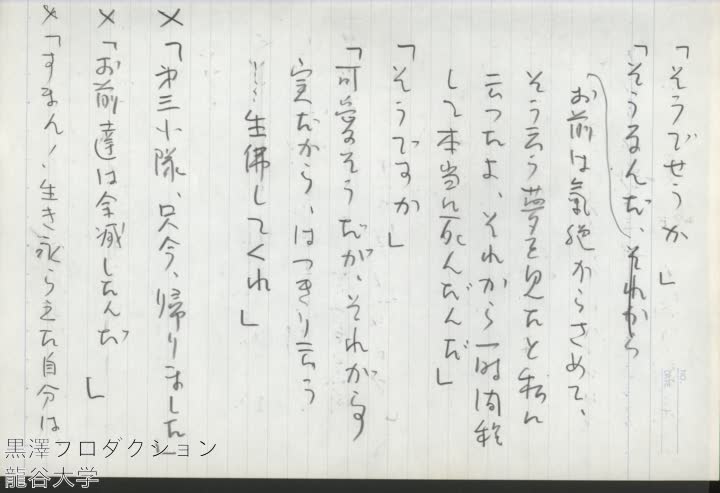 「そうでせうか」
「そうなんだ、それから
お前は氣絶からさめて、
そう云う夢を見たと私に
云つたよ、それから一時間程
して本当に死んだんだ」
「そうですか」
「可愛そうだが、それが事
実だから、はつきり云う
……生佛してくれ」
×「第三小隊、只今、帰りました」
×「お前達は全滅したんだ」
×「すまん！生き永らえた自分は
NO.
DATE
黒澤プロダクション
龍谷大学